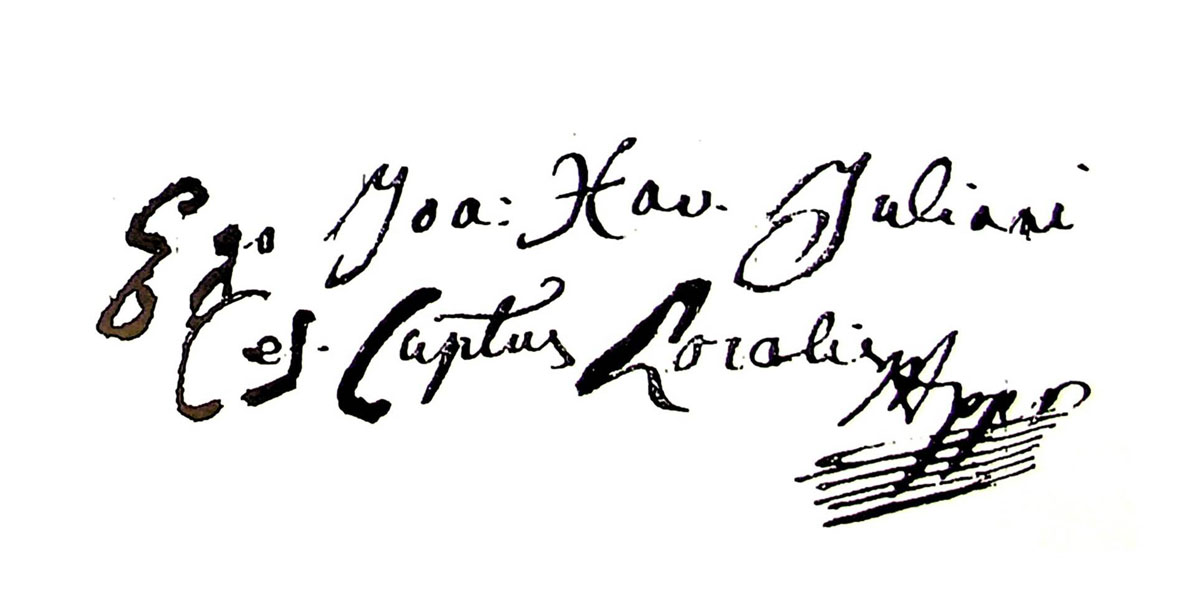 Ego Joa: Hav. Juliani
Ces. Captus Loralis